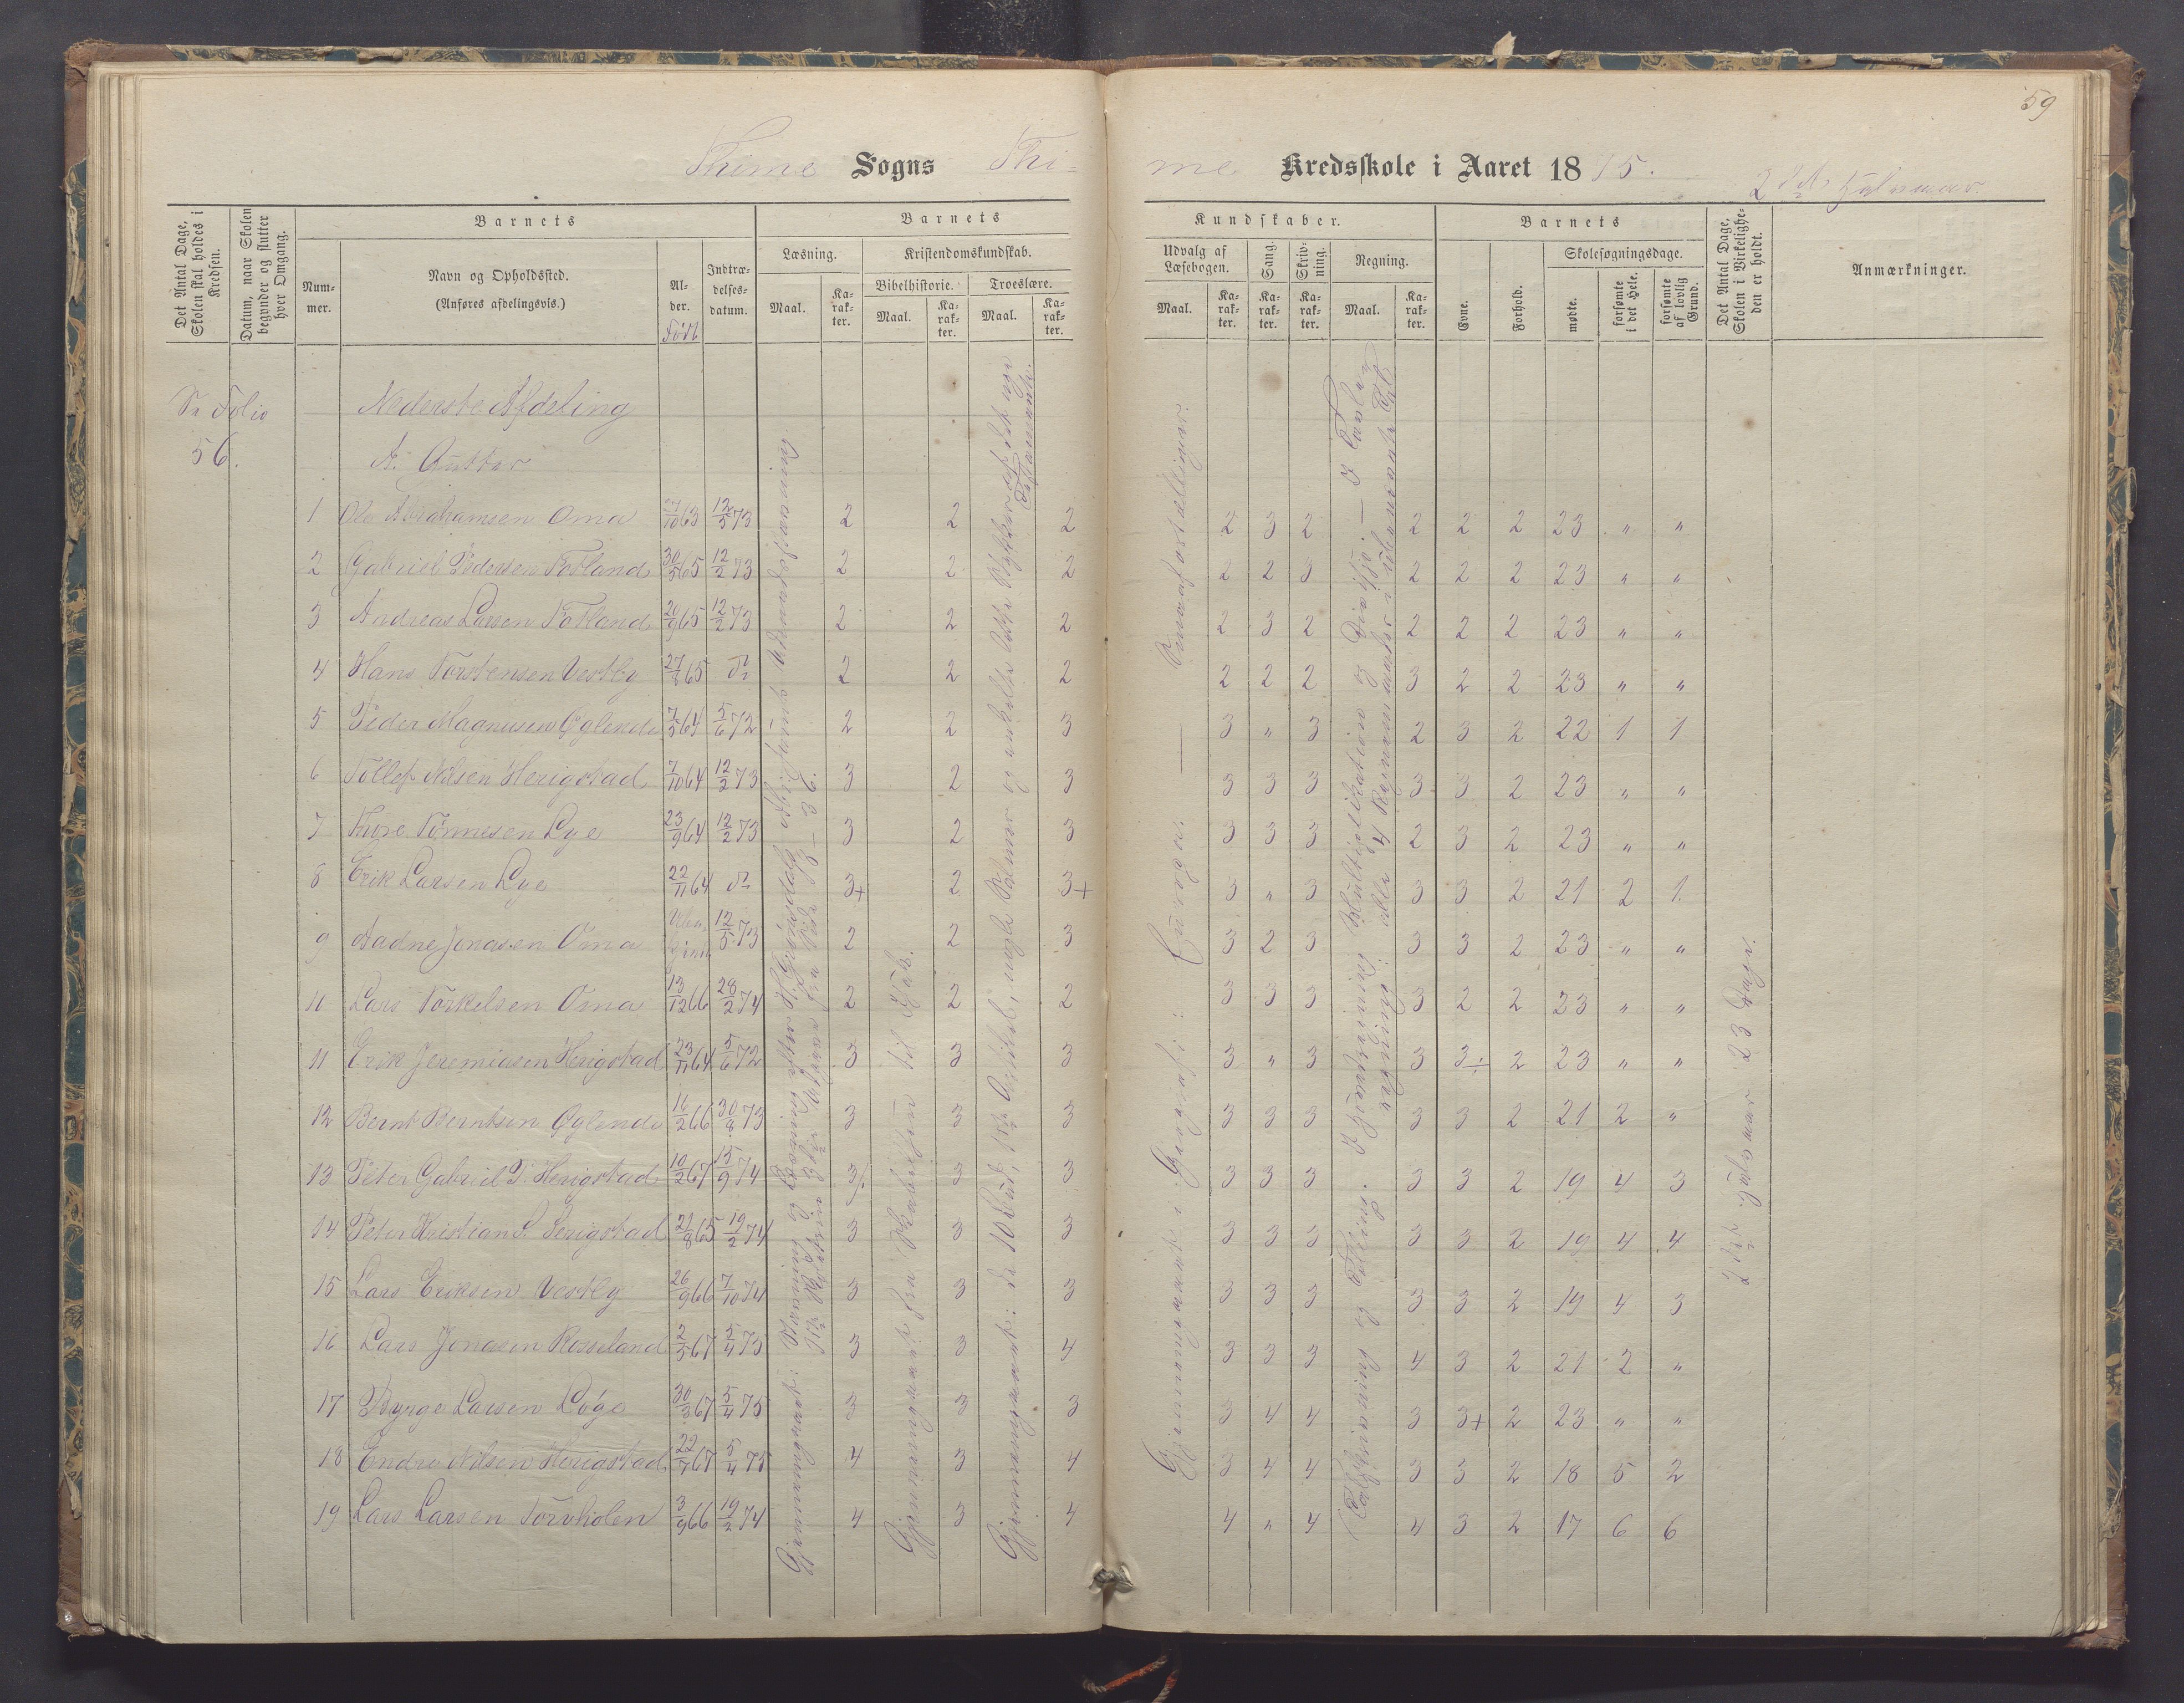 59
Thime Sogns Thi-
me Kredsskole i Aaret 1875.
2det Halvaar
Det Antal Dage, Skolen skal holdes i Kredsen.
Datum, naar Skolen begynder og slutter hver Omgang.
Barnets
Nummer.
Navn og Opholdssted.
(Anføres afdelingsvis.)
Alder.
Født
Indtrædelsesdatum.
Barnets
Læsning.
Maal.
Karakter.
Kristendomskundskab.
Bibelhistorie.
Maal.
Karakter.
Troeslære.
Maal.
Karakter.
Kundskaber.
Udvalg af Læsebogen.
Maal.
Karakter.
Sang.
Karakter.
Skrivning.
Karakter.
Regning.
Maal.
Karakter.
Barnets
Evne.
Forhold.
Skolesøgningsdage.
mødte.
forsømte i det Hele.
forsømte af lovlig Grund.
Det Antal Dage, Skolen i Virkeligheden er holdt.
Anmærkninger.
Se Folio
56.
Nederste Afdeling
A. Gutter
1 Ole Abrahamsen Oma 27/10 63 12/5 73 2 2 2 2 3 2 2 2 2 23 " "
2 Gabriel Pedersen Fosland 30/5 65 12/2 73 2 2 2 2 2 3 2 2 2 23 " "
3 Andreas Larsen Fotland 20/9 65 12/2 73 2 2 2 2 3 2 2 2 2 23 " "
4 Hans Torstensen Vestly 27/8 65 do 2 2 2 2 2 2 3 2 2 23 " "
5 Peder Magnusen Øglende 7/5 64 5/6 72 2 2 3 3 " 3 2 3 2 22 1 1
6 Tollef Nilsen Herigstad 7/10 64 12/2 73 3 2 3 3 3 3 3 3 2 23 " "
7 Thore Tønnesen Lye 23/9 64 12/2 73 3 2 3 3 3 3 2 3 2 23 " "
8 Erik Larsen Lye 22/11 64 do 3+ 2 3+ 3 " 3 3 3 2 21 2 1
9 Aadne Jonasen Oma 12/5 73 2 2 3 3 2 3 3 3 2 23 " "
10 Lars Torkelsen Oma 13/12 66 28/2 74 2 2 2 3 3 3 3 2 2 23 " "
11 Erik Jeremiasen Herigstad 23/11 64 5/6 72 3 3 3 3 " 3 3 3÷ 2 23 " "
12 Bernt Berntsen Øglende 16/2 66 30/8 73 3 3 3 3 3 3 3 3 2 21 2 "
13 Peter Gabriel T. Herigstad 10/2 67 15/9 74 3 3 3 3 3 3 3 3 2 19 4 3
14 Peter Kristian S. Herigstad 21/8 65 19/2 74 3 3 3 3 3 3 3 3 2 19 4 4
15 Lars Eriksen Vestly 26/9 66 7/10 74 3 3 3 3 3 3 3 3 2 19 4 3
16 Lars Jonasen Rosseland 2/5 67 5/4 75 3 3 4 3 3 3 4 3 2 21 2 "
17 Børge Larsen Løge 30/3 67 5/4 75 3 3 3 3 4 4 3 3+ 2 23 " "
18 Endre Nilsen Herigstad 22/7 67 5/4 75 4 3 4 3 4 4 3 3 2 18 5 2
19 Lars Larsen Torvholen 3/9 66 19/2 74 4 3 4 4 " 4 4 3 2 17 6 6
Gjennemgaaet fra Skabelsen til
Gjennemgaaet: de 10 Bud, 1ste Artikel, nogle Salmer og enkelte lette Stykker af det nye Testamente.
Gjennemgaaet i Geografi: Europa. — Smaafortællinger.
Multiplikation og Division
2det Halvaar 23 Dage.